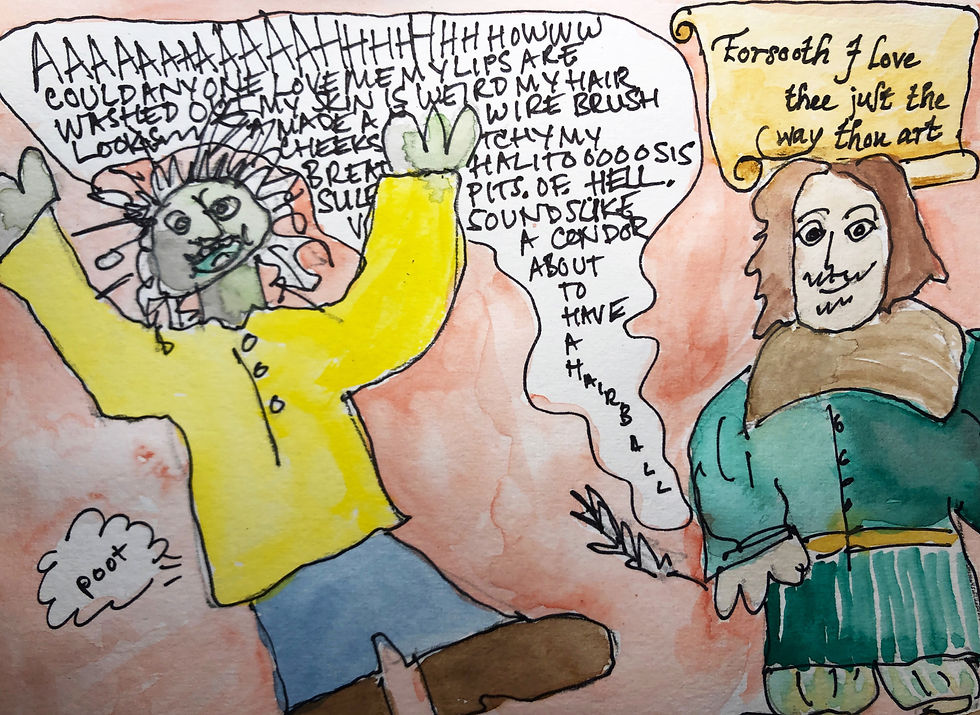 AAAAAAAAAAAAHHHHHHH HOWWW
COULD ANYONE LOVE ME MY LIPS ARE
WASHED OUT MY SKIN IS WEIRD MY HAIR
LOOKS MADE A WIRE BRUSH
CHEEKS TCHY MY
BREAT HALITOOOOSIS
SULF PITS. OF HELL.
V SOUNDS LIKE
A CONDOR
ABOUT
TO
HAVE
A
HAIRBALL
Forsooth I love
thee just the
way thou art
poot